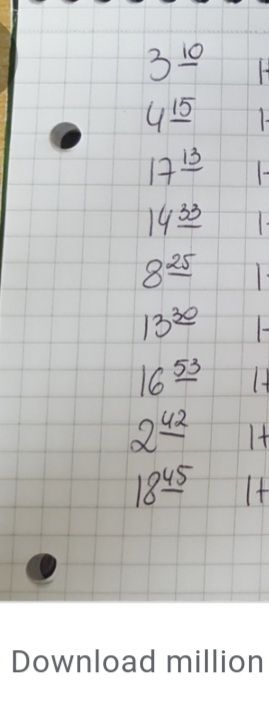 3 10
4 15
17 13
14 33
8 25
13 30
16 53
2 42
18 45
Download million